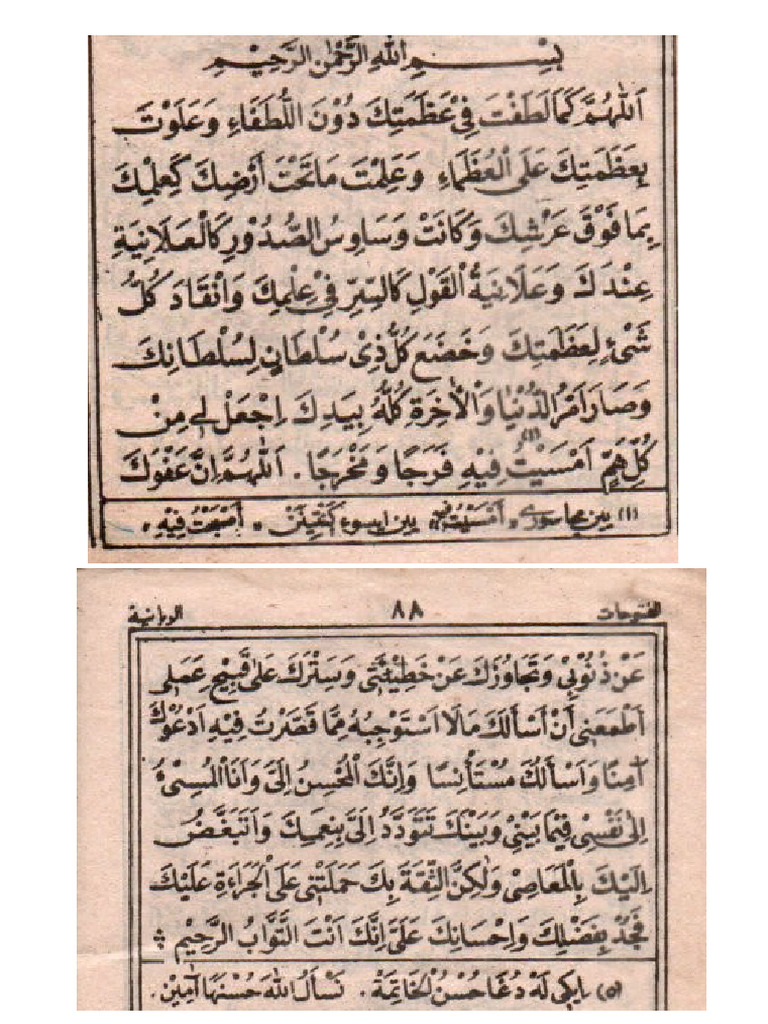 بِسْــــــــمِ اللهِ الرَّحْمٰنِ الرَّحِيْمِ
اَللّٰهُمَّ كَمَا لَطَفْتَ فِيْ عَظَمَتِكَ دُوْنَ اللُّطَفَاءِ وَعَلَوْتَ
بِعَظَمَتِكَ عَلَى الْعُظَمَاءِ وَعَلِمْتَ مَا تَحْتَ أَرْضِكَ كَعِلْمِكَ
بِمَا فَوْقَ عَرْشِكَ وَكَانَتْ وَسَاوِسُ الصُّدُوْرِ كَالْعَلَانِيَةِ
عِنْدَكَ وَعَلَانِيَةُ الْقَوْلِ كَالسِّرِّ فِيْ عِلْمِكَ وَانْقَادَ كُلُّ
شَيْءٍ لِعَظَمَتِكَ وَخَضَعَ كُلُّ ذِيْ سُلْطَانٍ لِسُلْطَانِكَ
وَصَارَ اَمْرُ الدُّنْيَا وَالْاٰخِرَةِ كُلُّهُ بِيَدِكَ اِجْعَلْ لِيْ مِنْ
كُلِّ هَمٍّ اَمْسَيْتُ (١) فِيْهِ فَرَجًا وَمَخْرَجًا . اَللّٰهُمَّ اِنَّ عَفْوَكَ
(١) اَمْسَيْتُ اَصْبَحْتُ فِيْهِ .
الفتوحات ٨٨ الربانية
عَنْ ذُنُوْبِيْ وَتَجَاوُزَكَ عَنْ خَطِيْئَتِيْ وَسَتْرَكَ عَلَى قَبِيْحِ عَمَلِي
اَطْمَعَنِي اَنْ اَسْأَلَكَ مَا لَا اَسْتَوْجِبُهُ مِمَّا قَصَّرْتُ فِيْهِ اَدْعُوْكَ
اٰمِنًا وَاَسْأَلُكَ مُسْتَأْنِسًا وَاِنَّكَ الْمُحْسِنُ اِلَيَّ وَاَنَا الْمُسِيْءُ
اِلَى نَفْسِيْ فِيْمَا بَيْنِيْ وَبَيْنَكَ تَتَوَدَّدُ اِلَيَّ بِنِعَمِكَ وَاَتَبَغَّضُ
اِلَيْكَ بِالْمَعَاصِيْ وَلٰكِنَّ الثِّقَةَ بِكَ حَمَلَتْنِي عَلَى الْجَرَاءَةِ عَلَيْكَ
فَجُدْ بِفَضْلِكَ وَاِحْسَانِكَ عَلَيَّ اِنَّكَ اَنْتَ التَّوَّابُ الرَّحِيْمِ
(٥) اِيْكِي لَهْ دُعَا حُسْنُ الْخَاتِمَةْ . نَسْأَلُ اللهَ حُسْنَهَا اٰمِيْنْ .